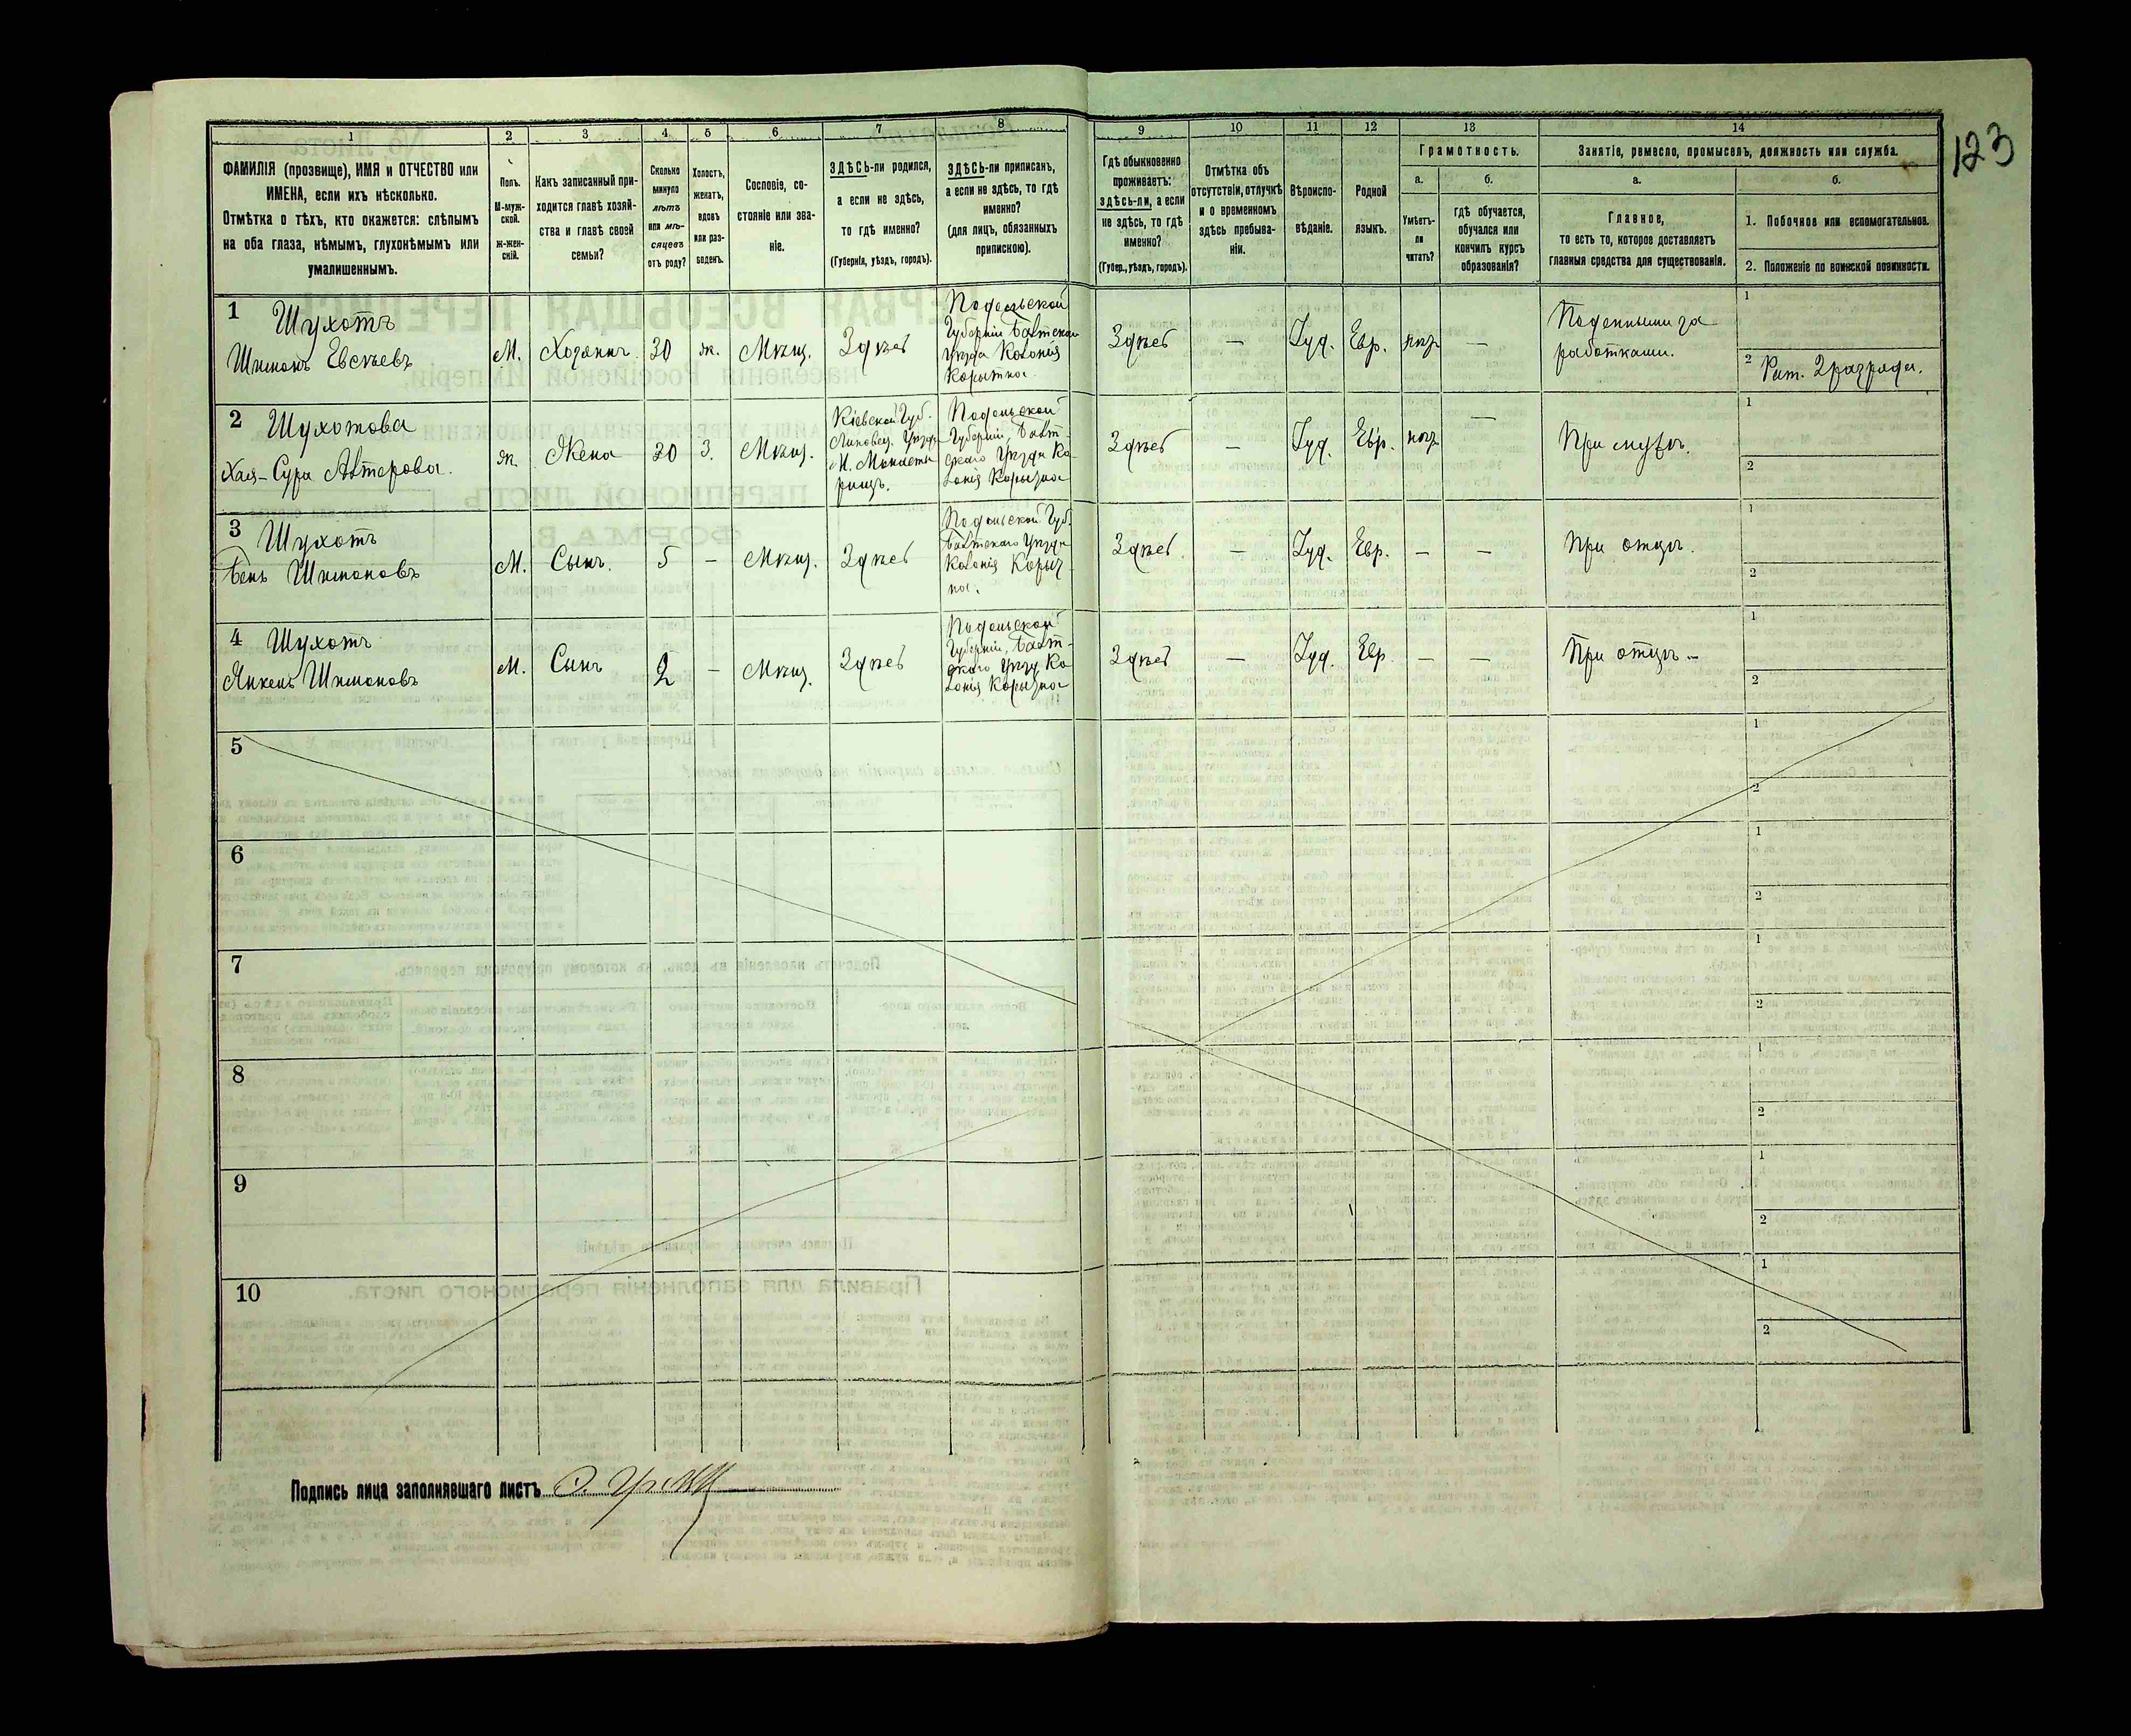 123
1 2 3 4 5 6 7 8 9 10 11 12 13 14
ФАМИЛІЯ (прозвище), ИМЯ и ОТЧЕСТВО или
ИМЕНА, если ихъ нѣсколько.
Отмѣтка о тѣхъ, кто окажется: слѣпымъ
на оба глаза, нѣмымъ, глухонѣмымъ или
умалишеннымъ.
Полъ.
М-муж-
ской.
Ж-жен-
скій.
Какъ записанный при-
ходится главѣ хозяй-
ства и главѣ своей
семьи?
Сколько
минуло
лѣтъ
или мѣ-
сяцевъ
отъ роду?
Холостъ,
женатъ,
вдовъ
или раз-
веденъ.
Сословіе, со-
стояніе или зва-
ніе.
ЗДѢСЬ-ли родился,
а если не здѣсь,
то гдѣ именно?
(Губернія, уѣздъ, городъ).
ЗДѢСЬ-ли приписанъ,
а если не здѣсь, то гдѣ
именно?
(для лицъ, обязанныхъ
припискою).
Гдѣ обыкновенно
проживаетъ:
здѣсь-ли, а если
не здѣсь, то гдѣ
именно?
(Губер., уѣздъ, городъ).
Отмѣтка объ
отсутствіи, отлучкѣ
и о временномъ
здѣсь пребыва-
ніи.
Вѣроиспо-
вѣданіе.
Родной
языкъ.
Грамотность.
а.
Умѣетъ-
ли
читать?
б.
гдѣ обучается,
обучался или
кончилъ курсъ
образованія?
Занятіе, ремесло, промыселъ, должность или служба.
а.
Главное,
то есть то, которое доставляетъ
главныя средства для существованія.
б.
1. Побочное или вспомогательное.
2. Положеніе по воинской повинности.
1 Шухотъ
Шимонъ Евсѣевъ
М.
Хозяинъ
30
ж.
Мѣщ.
Здѣсь
Подольской
Губерніи Балтскаго
Уѣзда Колонія
Корытна
Здѣсь
—
Іуд.
Евр.
—
Поденными за
работками.
1
2 Рат. 2 разряда.
2 Шухотова
Хая-Сура
ж.
Жена
30
З.
Мѣщ.
Кіевской Губ.
Липовец. Уѣзда
М. Монасты
рищъ.
Подольской
Губерніи, Балт-
скаго Уѣзда Ко-
лонія Корытна
Здѣсь
—
Іуд.
Евр.
—
При мужѣ.
1
2
3 Шухотъ
Бень Шимоновъ
М.
Сынъ.
5
—
Мѣщ.
Здѣсь
Подольской Губ.
Балтскаго Уѣзда
Колонія Корыт
на.
Здѣсь
—
Іуд.
Евр.
—
—
При отцѣ.
1
2
4 Шухотъ
Янкель Шимоновъ
М.
Сынъ
2
—
Мѣщ.
Здѣсь
Подольской
Губерніи, Балт-
скаго Уѣзд. Ко
лонія Корытна
Здѣсь
—
Іуд.
Евр.
—
—
При отцѣ
1
2
5
1
2
6
1
2
7
1
2
8
1
2
9
1
2
10
1
2
Подпись лица заполнявшаго листъ